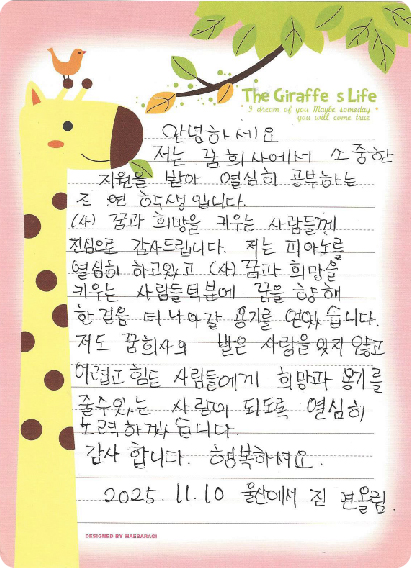 The Giraffe s Life
I dream of you Maybe someday
you will come true
안녕하세요
저는 꿈희사에서 소중한
지원을 받아 열심히 공부하는
학생입니다.
(사) 꿈과 희망을 키우는 사람들께
진심으로 감사드립니다. 저는 피아노를
열심히 하고있고 (사)꿈과 희망을
키우는 사람들덕분에 꿈을 향해
한걸음 더 나아갈 용기를 얻었습니다.
저도 꿈희사의 받은 사랑을 잊지 않고
어렵고 힘든 사람들에게 희망과 용기를
줄수있는 사람이 되도록 열심히
노력하겠습니다
감사 합니다. 행복하세요.
2025. 11.10 울산에서 올림.
DESIGNED BY